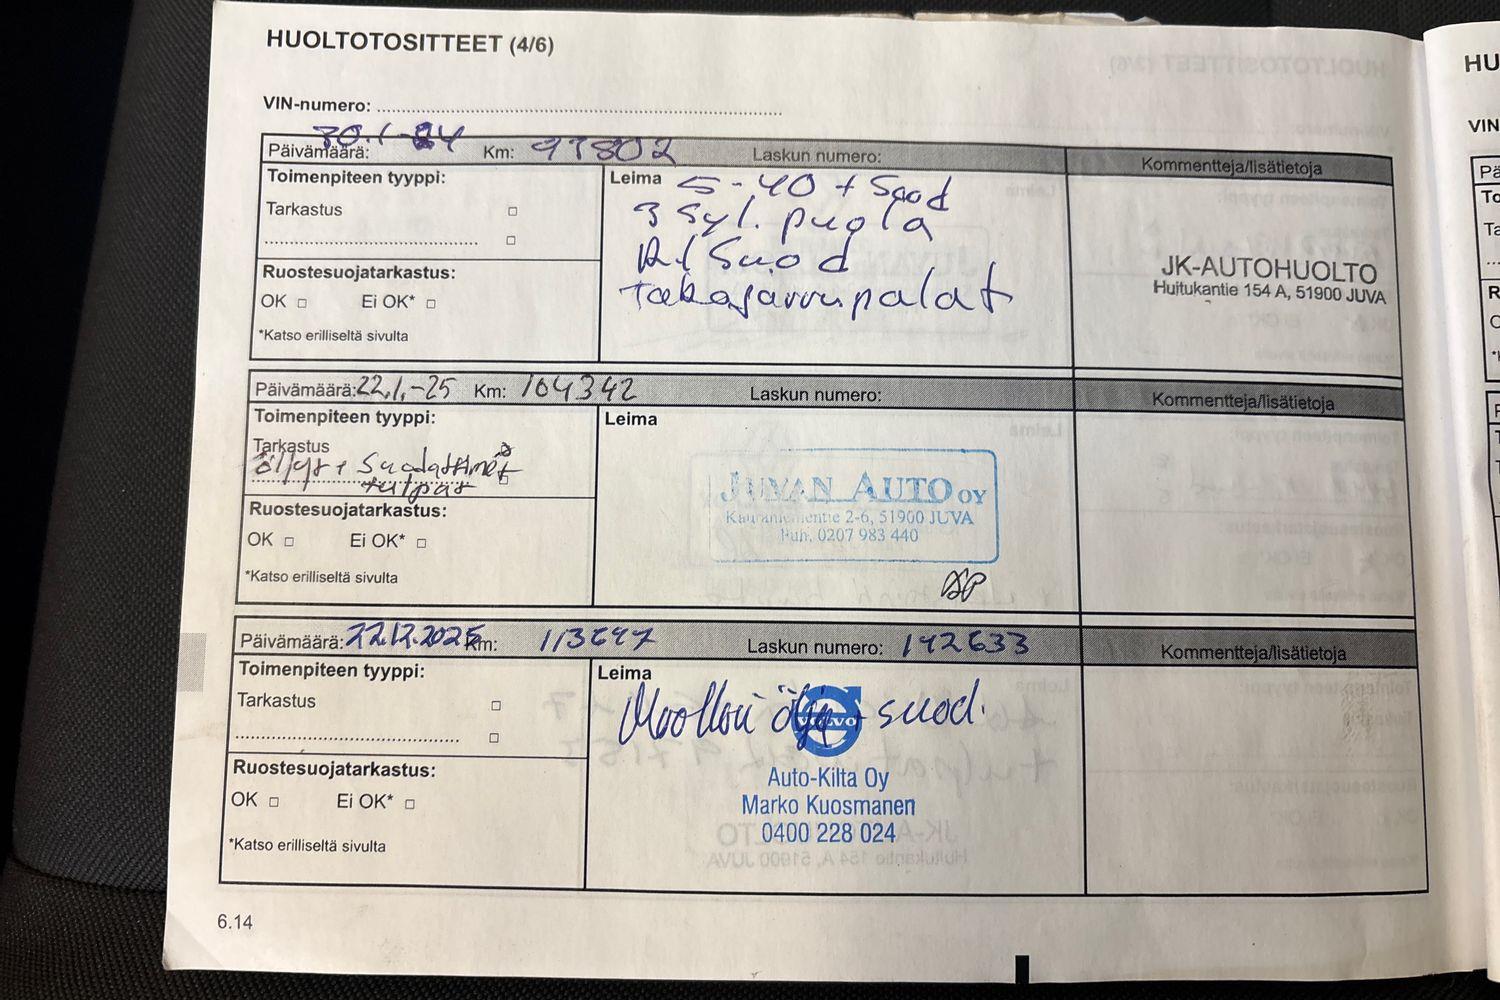 HUOLTOTOSITTEET (4/6)
VIN-numero:
Päivämäärä: 30.1-24 Km: 97802 Laskun numero: Kommentteja/lisätietoja
Toimenpiteen tyyppi:
Tarkastus
Ruostesuojatarkastus:
OK Ei OK*
*Katso erilliseltä sivulta
Leima 5-40 + Suod
3 syl. puola
R/Suod
takajarrupalat
JK-AUTOHUOLTO
Huitukantie 154 A, 51900 JUVA
Päivämäärä: 22.1.-25 Km: 104342 Laskun numero: Kommentteja/lisätietoja
Toimenpiteen tyyppi:
Tarkastus
öljyt + Suodattimet
tulpat
Ruostesuojatarkastus:
OK Ei OK*
*Katso erilliseltä sivulta
Leima
JUVAN AUTO OY
2-6, 51900 JUVA
Puh. 0207 983 440
Päivämäärä: 22.12.2025 Km: 113647 Laskun numero: 142633 Kommentteja/lisätietoja
Toimenpiteen tyyppi:
Tarkastus
Ruostesuojatarkastus:
OK Ei OK*
*Katso erilliseltä sivulta
Leima
Moottori öljy + suod.
VOLVO
Auto-Kilta Oy
Marko Kuosmanen
0400 228 024
6.14
HU
VIN